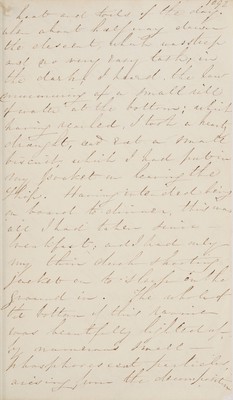 heat and toils of the day.
when about half way down
the descent, which was steep
and no very easy task, in
the dark, I heard the low
murmuring of a small rill
of water at the bottom; which
having reached, I took a hearty
draught, and eat a small
biscuit, which I had put in
my pocket on leaving the
Ship. Having intended being
on board to dinner, this was
all I had taken since
breakfast, and had only
my thin duck shooting
jacket on to sleep on the
ground in. The whole of
the bottom of this ravine
was beautifully lighted up
by numerous small
phosphorescent particles,
arising from the decomposition